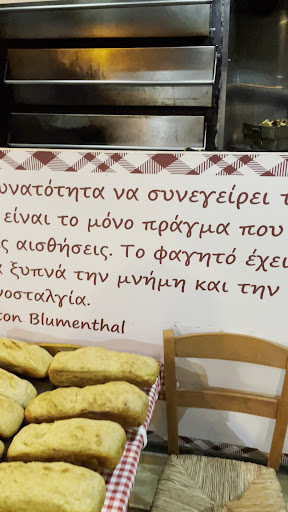 υνατότητα να συνεγείρει τ
είναι το μόνο πράγμα που
ς αισθήσεις. Το φαγητό έχει
α ξυπνά την μνήμη και την
νοσταλγία.
ton Blumenthal